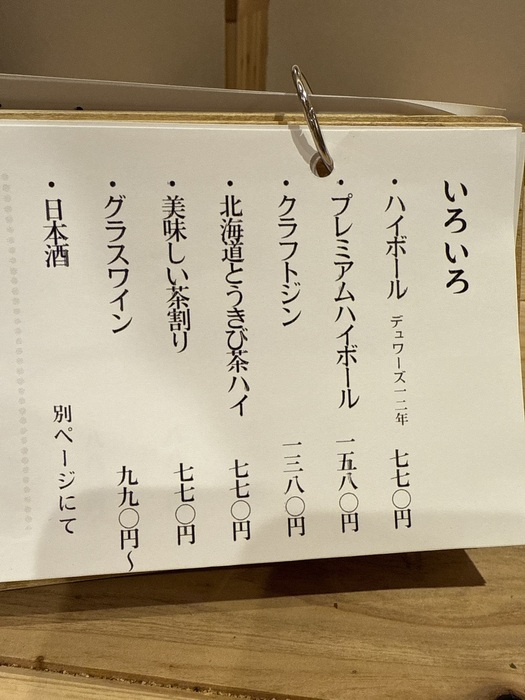 いろいろ
・ハイボール デュワーズ一二年 七七〇円
・プレミアムハイボール 一五八〇円
・クラフトジン 一三八〇円
・北海道とうきび茶ハイ 七七〇円
・美味しい茶割り 七七〇円
・グラスワイン 九九〇円〜
・日本酒 別ページにて